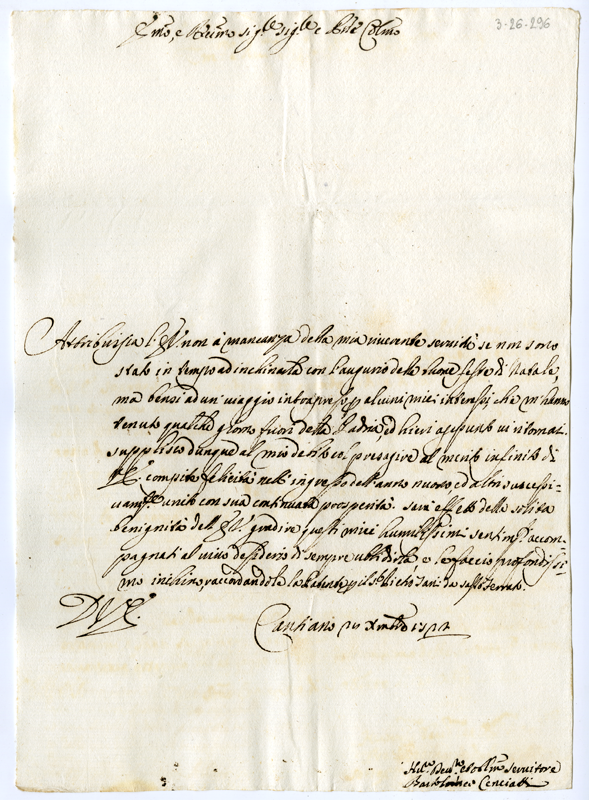 3-26-296
Emo, e Rmo sigle sigle e Pne Colmo
Attribuisca l'E.V. non à mancanza della mia riverente servitù se non sono
stato in tempo ad inchinarla con l'augurio delle buone feste di Natale,
ma bensì ad un' viaggio intrapreso p alcuni miei interessi, che m'hanno
tenuto qualche giorno fuori della Padria, ed hieri appunto vi ritornai.
supplisco dunque al mio debito col presagire al merito infinito di
V.E. compite felicità nell' ingresso dell'anno nuovo ed altri successi-
vamte unito con sua continuata prosperità. sarà effetto della solita
benignità dell' E.V. gradire questi miei humilissimi sentimti accom-
pagnati al vivo desiderio di sempre ubbidirla, e le faccio profondissi-
mo inchino, raccordandole la
D V.E.
Cantiano Xmbre
Humo Devmo et Obblmo servitore
Bartolomeo Cenciatti